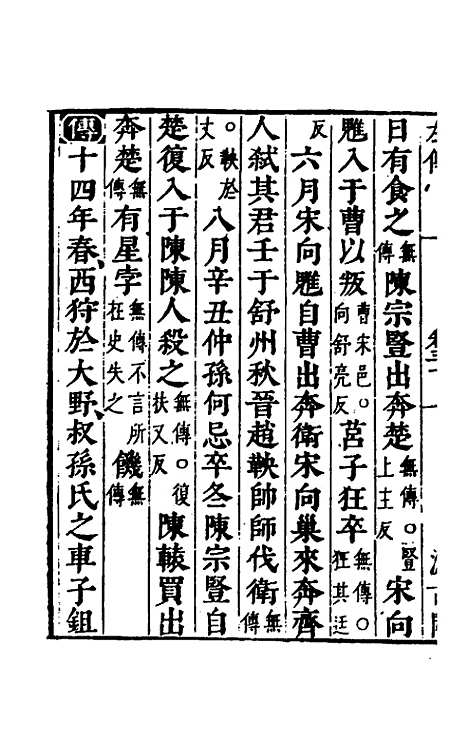 日有食之無傳陳宗豎出奔楚無傳○豎上主反宋向
魋入于曹以叛曹宋邑○向舒亮反莒子狂卒無傳○狂其廷
反六月宋向魋自曹出奔衛宋向巢來奔齊
人弒其君壬于舒州秋晉趙鞅帥師伐衛無傳
○鞅於丈反八月辛丑仲孫何忌卒冬陳宗豎自
楚復入于陳陳人殺之無傳○復扶又反陳轅買出
奔楚無傳有星孛無傳不言所在史失之饑無傳
傳十四年春西狩於大野叔孫氏之車子鉏